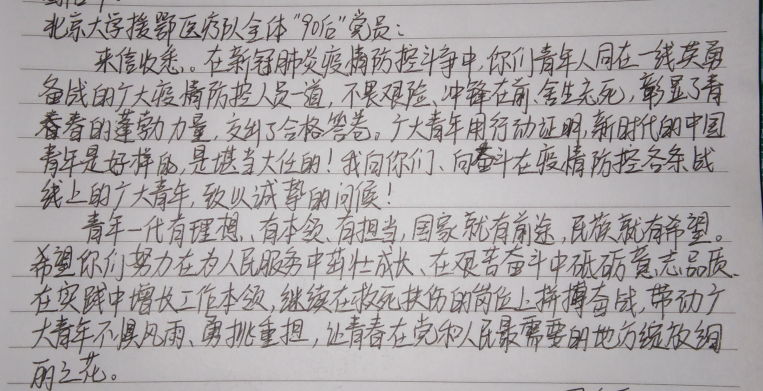 北京大学援鄂医疗队全体“90后”党员：
来信收悉。在新冠肺炎疫情防控斗争中，你们青年人同在一线英勇
奋战的广大疫情防控人员一道，不畏艰险、冲锋在前、舍生忘死，彰显了青
春的蓬勃力量，交出了合格答卷。广大青年用行动证明，新时代的中国
青年是好样的，是堪当大任的！我向你们、向奋斗在疫情防控各条战
线上的广大青年，致以诚挚的问候！
青年一代有理想、有本领、有担当，国家就有前途，民族就有希望。
希望你们努力在为人民服务中茁壮成长、在艰苦奋斗中砥砺意志品质、
在实践中增长工作本领，继续在救死扶伤的岗位上拼搏奋战，带动广
大青年不惧风雨、勇挑重担，让青春在党和人民最需要的地方绽放绚
丽之花。